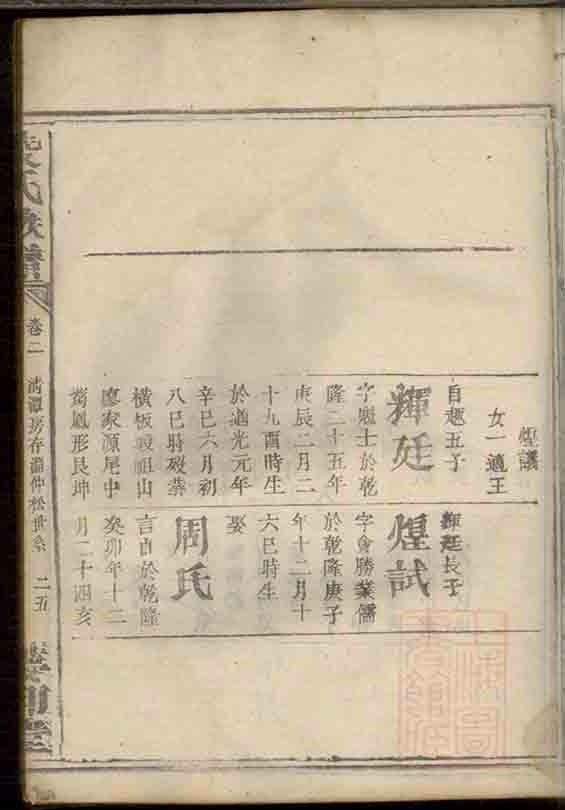 煌議
女一適王
自趣五子
輝廷
字魁士於乾
隆二十五年
庚辰二月二
十九酉時生
於道光元年
辛巳六月初
八巳時歿葬
橫板嶺祖山
廖家源尾中
鳳形艮坤
輝廷長子
煌試
字會勝業儒
於乾隆庚子
年十二月十
六巳時生
娶
周氏
言自於乾隆
癸卯年十二
月二十四亥
氏族譜
卷二
清潭房存淵仲松世系
二五